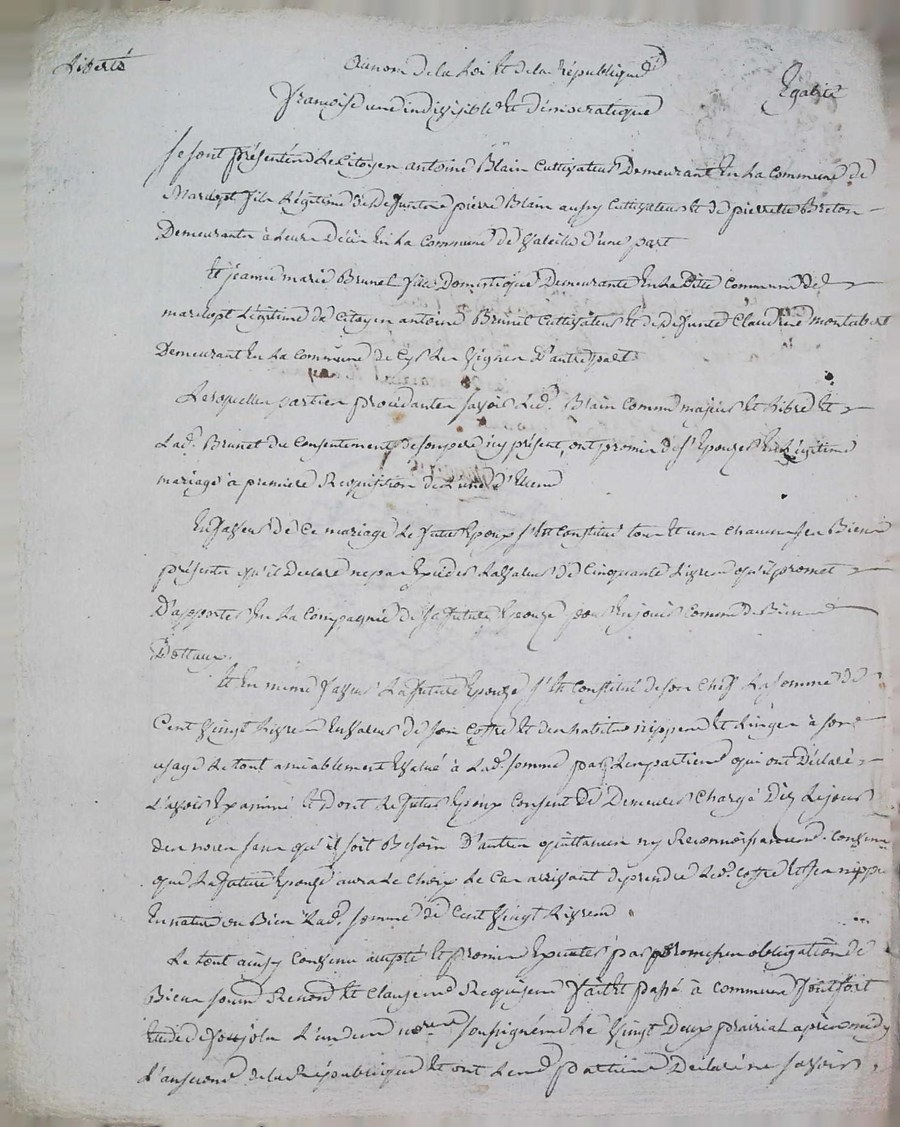 Liberté
Au nom de la Loi Et de la république
Egalité
francoise une indivisible Et démocratique
se sont présentés Le Citoyen antoine Blain Cultivateur Demeurant En La Commune de
Mardopt fils Légitime de Defunt pierre Blain aussy Cultivateur Et de pierrette Breton
Demeurants à Leurs Décès En La Commune de d'une part
Et jeanne marie Brunel fille Domestique Demeurante En La Ditte Commune de
mardopt Légitime de Citoyen antoine Brunel Cultivateur Et de Defunte Claudine montabert
Demeurant En La Commune de Les Vignes D'autre part
Lesquelles parties procédantes savoir Led. Blain Comme majeur Et Libre Et
Lad. Brunel du Consentement de son pere icy présent, ont promis de s'Epouzer En Légitime
mariage à premiere Requisition de L'une d'Elles
En faveur de Ce mariage Le futur Epoux s'Est Constitué tous Et un Chacuns ses Biens
présents qu'il Declare ne pas Exceder La valeur de Cinquante Livres qu'il promet
D'apporter En La Compagnie de sa future Epouze pour En jouir Comme de Biens
Dottaux.
Et En meme faveur La future Epouze s'Est Constitué de son Chef La somme de
Cent vingt Livres En valeur de son Coffre Et des habits nippes Et Linges à son
usage Le tout amiablement Evalué à Lad. somme par Les parties qui ont Déclaré
L'avoir Examiné Et Dont Le futur Epoux Consent de Demeurer Chargé Dez Le jour
des noces sans qu'il soit Besoin D'autres quittances ny Reconnoissances. Convenu
que La future Epouze aura Le Choix Le Cas arrivant de prendre Led. Coffre Et ses nippes
En nature ou Bien Lad. somme de Cent vingt Livres
Le tout ainsy Convenu accepté Et promis Executer par promesses obligation de
Biens soumd Renond Et Clauses Requises fait Et passé à Commune
Etude de L'un des nores soussignés Le vingt Deux prairial après midy
L'an second de la République Et ont Lesd. parties Declaré ne savoir